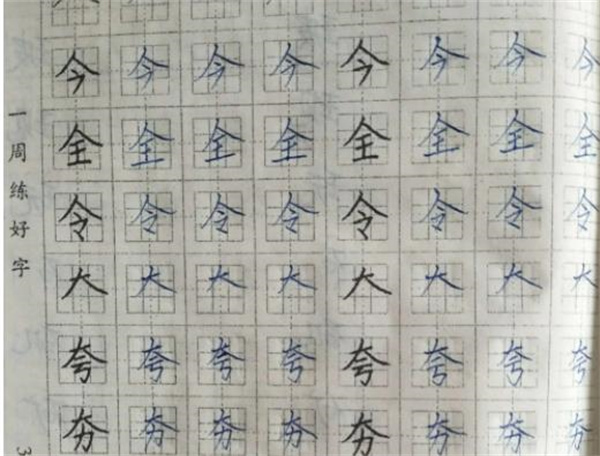 一周练好字
今今今今今今今今
全全全全全全全全
令令令令令令令令
大大大大大大大大
夸夸夸夸夸夸夸夸
夯夯夯夯夯夯夯夯
3